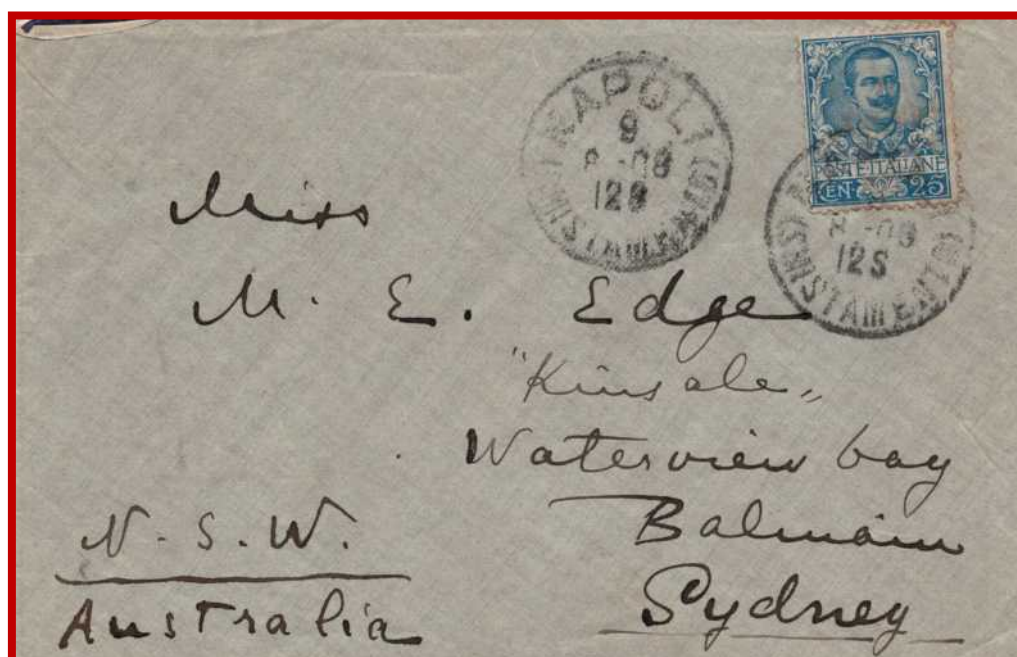 NAPOLI
9
8 - 08
12S
(SMISTAMENTO)
POSTE ITALIANE
CEN. 25
8 - 08
12S
(SMISTAMENTO)
Miss
M. E. Edge
"Kinsale"
Waterview bay
Balmain
Sydney
N. S. W.
Australia